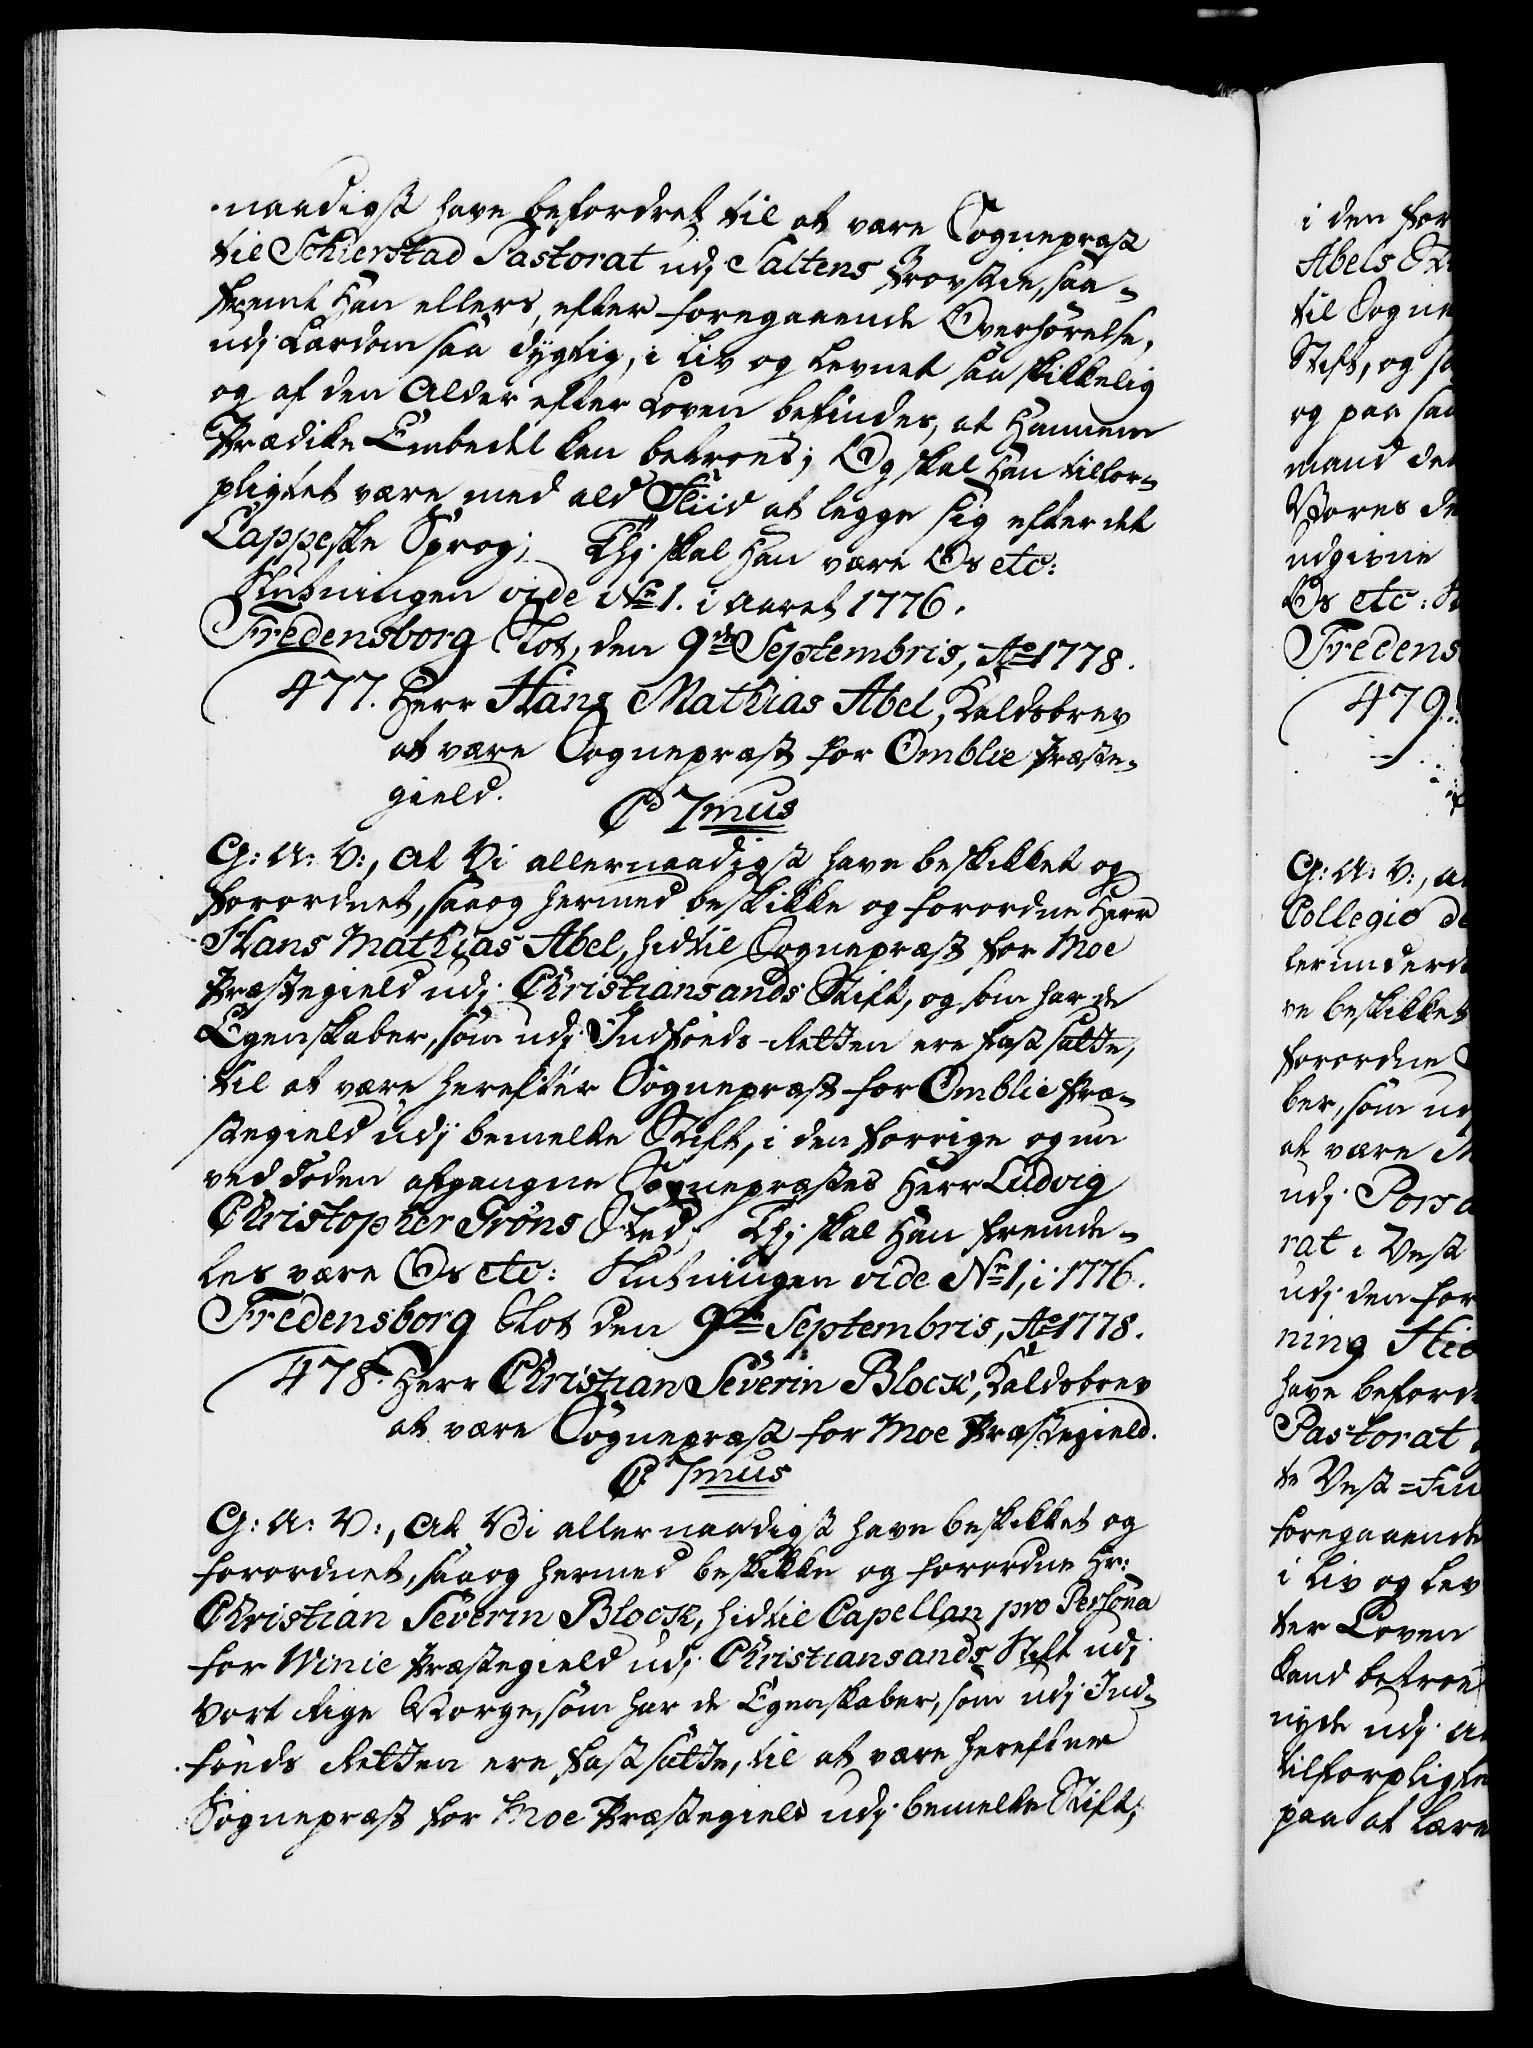 naadigst have befordret til at være Sognepræst
til Schierstad Pastorat udj Saltens Provstie, saa-
fremt Han ellers, efter foregaaende Overhørelse,
udj Lærdom saa dygtig, i Liv og Levnet saa skikkelig
og af den Alder efter Loven befindes, at Hannem
Prædike Embedet kan betroes; Og skal Han tilfor-
pligtet være med ald Fliid at legge sig efter det
Lappeske Sprog; Thj skal Han være Os etc:
Slutningen vide No 1. i Aaret 1776.
Fredensborg Slot, den 9de Septembris, Ao 1778.
477. Herr Hans Mathias Abel, Kaldsbrev
at være Sognepræst for Omblie Præste-
gield.
C 7mus
G: A: V:, At Vi allernaadigst have beskikket og
forordnet, saa og hermed beskikke og forordne Herr
Hans Mathias Abel, hidtil Sognepræst for Moe
Præstegield udj Christiansands Stift, og som har de
Egenskaber, som udj Indføds-Retten ere fastsatte,
til at være herefter Sognepræst for Omblie Præ-
stegield udj bemelte Stift, i den forrige og nu
ved Døden afgangne Sognepræstes Herr Ludvig
Christopher Grøns Sted; Thj skal Han fremde-
les være Os etc: Slutningen vide No 1, i 1776.
Fredensborg Slot den 9de Septembris, Ao 1778.
478. Herr Christian Severin Block, Kaldsbrev
at være Sognepræst for Moe Præstegield.
C 7mus
G: A: V:, At Vi allernaadigst have beskikket og
forordnet, saa og hermed beskikke og forordne Hr:
Christian Severin Block, hidtil Capellan pro Persona
for Winie Præstegield udj Christiansands Stift udj
Vort Rige Norge, som har de Egenskaber, som udj Ind-
føds Retten ere fastsatte, til at være herefter
Sognepræst for Moe Præstegield udj bemelte Stift,
i den for
Abels
til Sogne
Stift, og
og paa saa
mand det
Vores
udgivne
Os etc:
Fredens
479.
G: A: V:, at
Collegio de
lerunderd
ve beskikket
forordne
ber, som ud
at være
udj Porsa
rat i Vest
udj den for
ning
have beford
Pastorat
te Vest-Fin
foregaaende
i Liv og Lev
ter Loven
kand betroe
nyde udj
tilforpligte
paa at lære